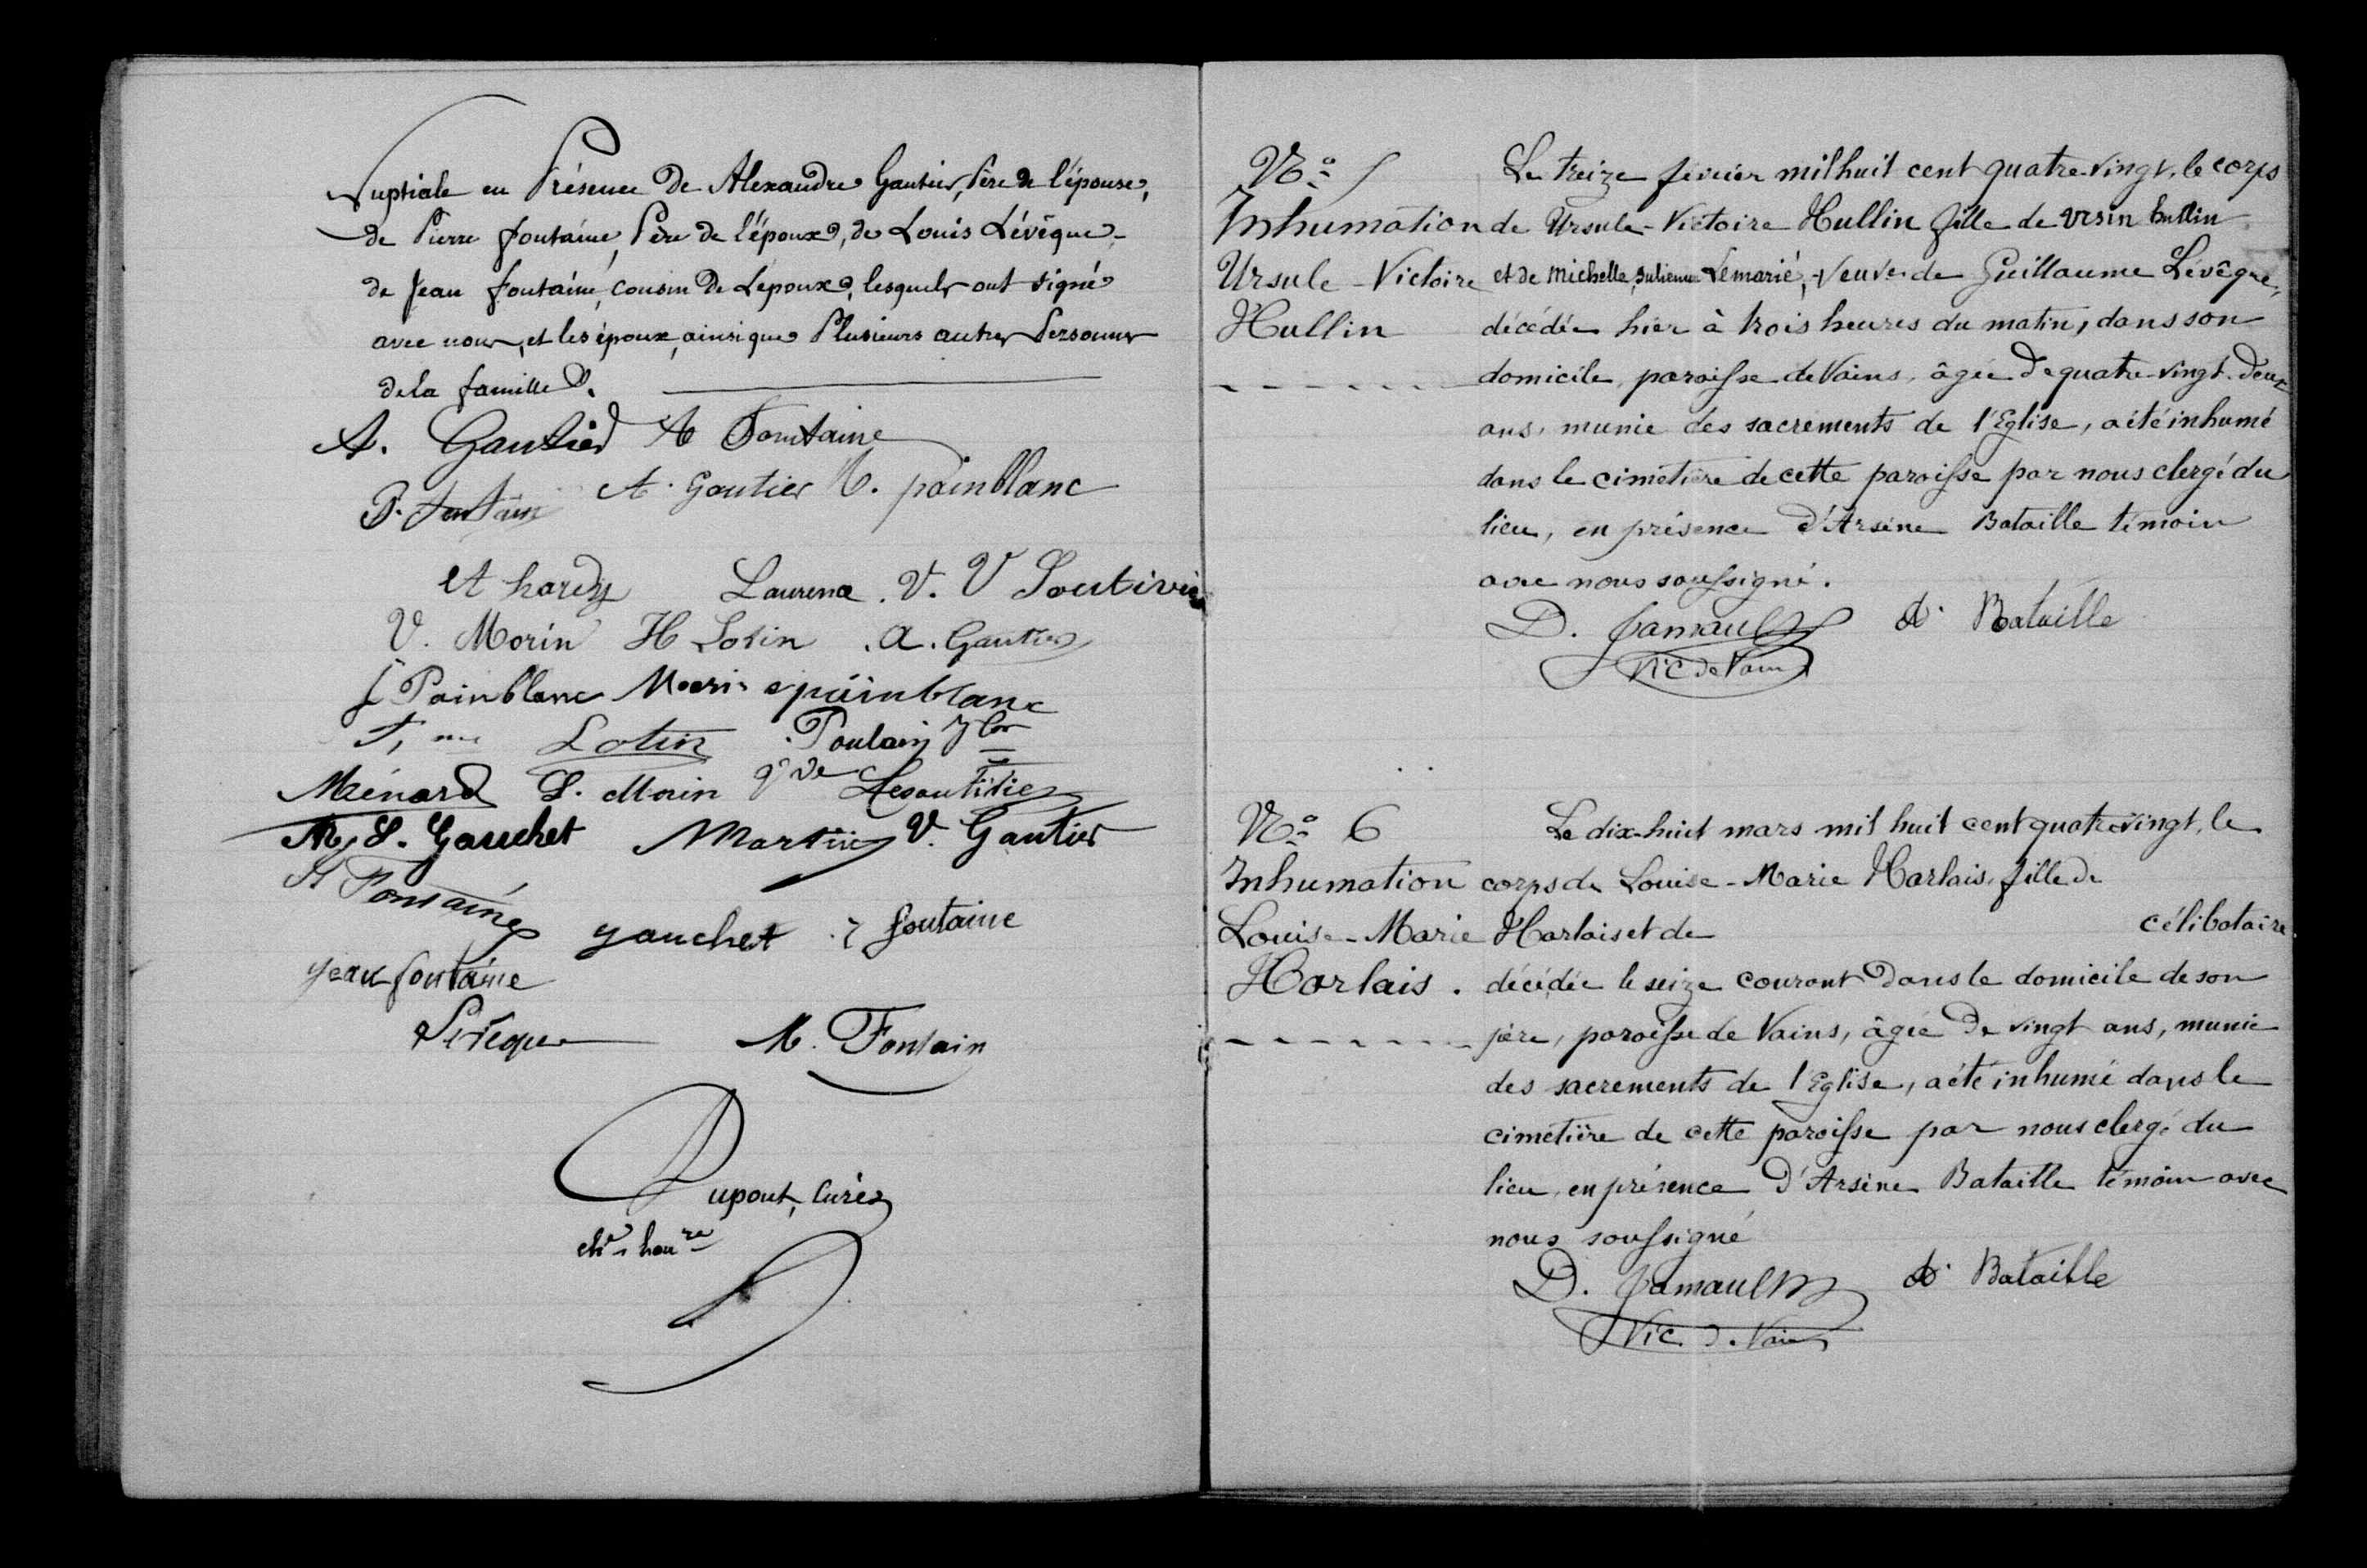 Nuptiale en Présence de Alexandre Gautier, Père de l'épouse,
de Pierre fontaine, Père de l'époux, de Louis Lévêque
de Jean fontaine, cousin de l'époux, lesquels ont signé
avec nous, et les époux, ainsi que Plusieurs autres Personnes
de la famille.
A. Gautier A Fontaine
P. fontaine A. Gautier V. painblanc
et hardy Laurence. V. V
V. Morin H Lotin . A. Gautier
Painblanc Morin painblanc
Lotin Poulain
Ménard S. Morin
M, S. Gauchet Martin V. Gautier
Fontaine
gauchet fontaine
jean fontaine
Lévêque M. Fontain
Dupont, Curé
che honre
N° 5
Inhumation
Ursule-Victoire
Hullin
Le treize février mil huit cent quatre-vingt, le corps
de Ursule-Victoire Hullin fille de Ursin hullin
et de Michelle, Julienne Lemarié, veuve de Guillaume Lévêque,
décédée hier à trois heures du matin, dans son
domicile, paroisse de Vains, âgée de quatre-vingt-deux
ans, munie des sacrements de l'Eglise, a été inhumé
dans le cimetière de cette paroisse par nous clergé du
lieu, en présence d'Arsène Bataille témoin
avec nous soussigné.
D. Jamault A. Bataille
Vic de Vains
N° 6
Inhumation
Louise-Marie
Harlais.
Le dix-huit mars mil huit cent quatre-vingt, le
corps de Louise-Marie Harlais, fille de
Harlais et de célibataire
décédée le seize courant dans le domicile de son
père, paroisse de Vains, âgée de vingt ans, munie
des sacrements de l'Eglise, a été inhumé dans le
cimetière de cette paroisse par nous clergé du
lieu, en présence d'Arsène Bataille témoin avec
nous soussigné
D. Jamault A. Bataille
Vic. de Vains